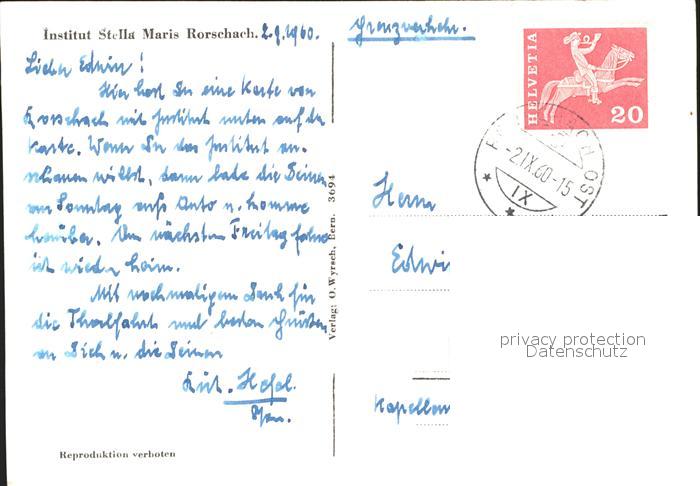 Institut Stella Maris Rorschach. 2.9.1960.
Lieber Edwin!
Hier hast Du eine Karte von
Rorschach mit Institut unten auf der
Karte. Wenn Du das Institut an-
schauen willst, dann lade die Deinen
am Sonntag aufs Auto u. komme
herüber. Am nächsten Freitag fahre
ich wieder heim.
Mit nochmaligem Dank für
die Thalfahrt und besten Grüßen
an Dich u. die Deinen
Verlag: O. Wyrsch, Bern. 3694
Reproduktion verboten
Grenzverkehr.
HELVETIA
20
OST
-2.IX.60-15
IX
Herrn
Edwi
Kapellen
privacy protection
Datenschutz